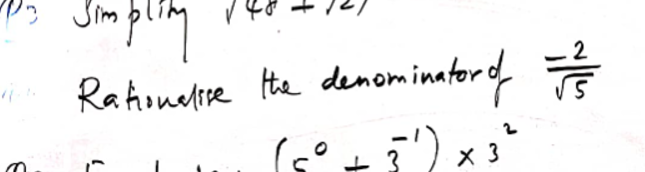 Simplify √48 + √27
Rationalise the denominator of -2/√5
(5⁰ + 3⁻¹) × 3²